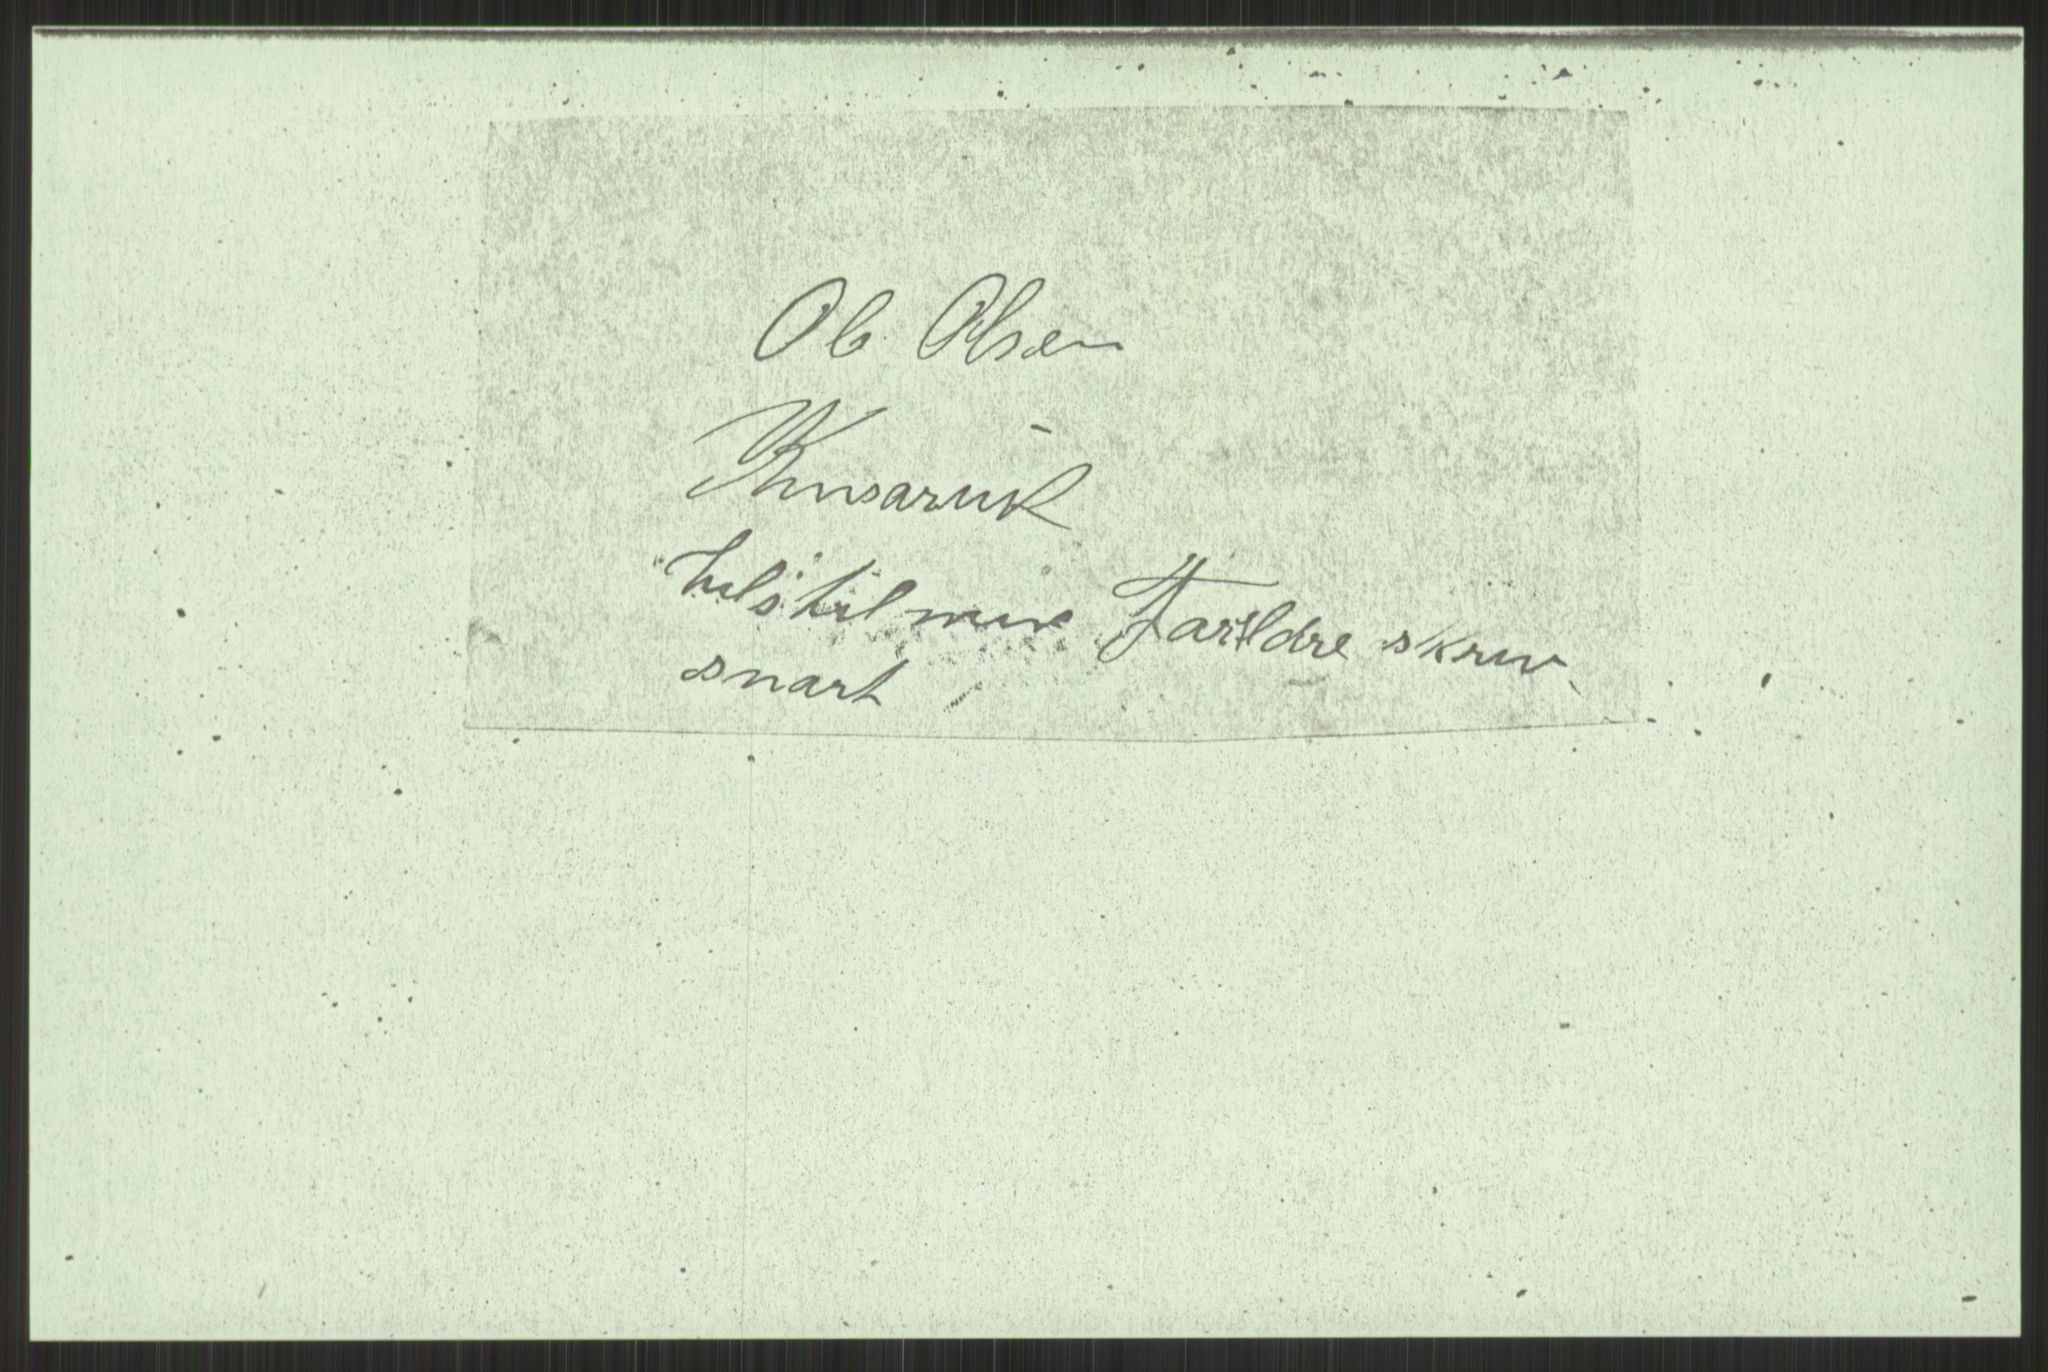 Ole Olsen
Kinsarvik
hels til mine Farældre skriv
snart